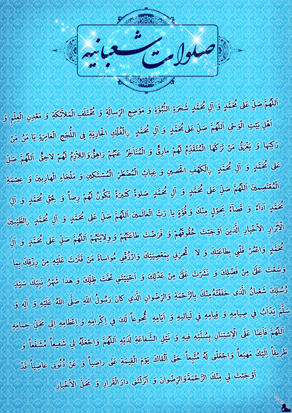 صلوات شعبانیه
اَللّهُمَّ صَلِّ عَلى مُحَمَّدٍ وَ آلِ مُحَمَّدٍ شَجَرَةِ النُّبُوَّةِ وَ مَوْضِعِ الرِّسالَةِ وَ مُخْتَلَفِ الْمَلآئِكَةِ وَ مَعْدِنِ الْعِلْمِ وَ
اَهْلِ بَيْتِ الْوَحْىِ اَللّهُمَّ صَلِّ عَلى مُحَمَّدٍ وَ آلِ مُحَمَّدٍ الْفُلْكِ الْجارِيَةِ فِى اللُّجَجِ الْغامِرَةِ يَاْ مَنُ مَنْ
رَكِبَها وَ يَغْرَقُ مَنْ تَرَكَهَا الْمُتَقَدِّمُ لَهُمْ مارِقٌ وَ الْمُتَاَخِّرُ عَنْهُمْ زاهِقٌ وَاللاّزِمُ لَهُمْ لاحِقٌ اَللّهُمَّ صَلِّ
عَلى مُحَمَّدٍ وَ آلِ مُحَمَّدٍ الْكَهْفِ الْحَصينِ وَ غِياثِ الْمُضْطَرِّ الْمُسْتَكينِ وَ مَلْجَاِ الْهارِبينَ وَ عِصْمَةِ
الْمُعْتَصِمينَ اَللّهُمَّ صَلِّ عَلى مُحَمَّدٍ وَ آلِ مُحَمَّدٍ صَلوةً كَثيرَةً تَكُونُ لَهُمْ رِضاً وَ لِحَقِّ مُحَمَّدٍ وَ آلِ
مُحَمَّدٍ اَدآءً وَ قَضآءً بِحَوْلٍ مِنْكَ وَ قُوَّةٍ يا رَبَّ الْعالَمينَ اَللّهُمَّ صَلِّ عَلى مُحَمَّدٍ وَ آلِ مُحَمَّدٍ الطَّيِّبينَ
الاَْبْرارِ الاَْخْيارِ الَّذينَ اَوْجَبْتَ حُقُوقَهُمْ وَ فَرَضْتَ طاعَتَهُمْ وَ وِلايَتَهُمْ اَللّهُمَّ صَلِّ عَلى مُحَمَّدٍ وَ آلِ
مُحَمَّدٍ وَ اعْمُرْ قَلْبى بِطاعَتِكَ وَ لا تُخْزِنى بِمَعْصِيَتِكَ وَارْزُقْنى مُواساةَ مَنْ قَتَّرْتَ عَلَيْهِ مِنْ رِزْقِكَ بِما
وَسَّعْتَ عَلَىَّ مِنْ فَضْلِكَ وَ نَشَرْتَ عَلَىَّ مِنْ عَدْلِكَ وَ اَحْيَيْتَنى تَحْتَ ظِلِّكَ وَ هذا شَهْرُ نَبِيِّكَ سَيِّدِ
رُسُلِكَ شَعْبانُ الَّذى حَفَفْتَهُ مِنْكَ بِالرَّحْمَةِ وَالرِّضْوانِ الَّذى كانَ رَسُولُ اللهِ صَلَّى اللهُ عَلَيْهِ وَ آلِه وَ
سَلَّمَ يَدْاَبُ فى صِيامِه وَ قِيامِه فى لَياليهِ وَ اَيّامِه بُخُوعاً لَكَ فى اِكْرامِه وَ اِعْظامِه اِلى مَحَلِّ حِمامِه
اَللّهُمَّ فَاَعِنّا عَلَى الاِْسْتِنانِ بِسُنَّتِه فيهِ وَ نَيْلِ الشَّفاعَةِ لَدَيْهِ اَللّهُمَّ وَاجْعَلْهُ لى شَفيعاً مُشَفَّعاً وَ
طَريقاً اِلَيْكَ مَهْيَعاً وَاجْعَلْنى لَهُ مُتَّبِعاً حَتّى اَلْقاكَ يَوْمَ الْقِيمَةِ عَنّى راضِياً وَ عَنْ ذُنُوبى غاضِياً قَدْ
اَوْجَبْتَ لى مِنْكَ الرَّحْمَةَ وَالرِّضْوانَ وَ اَنْزَلْتَنى دارَ الْقَرارِ وَ مَحَلَّ الاَْخْيارِ